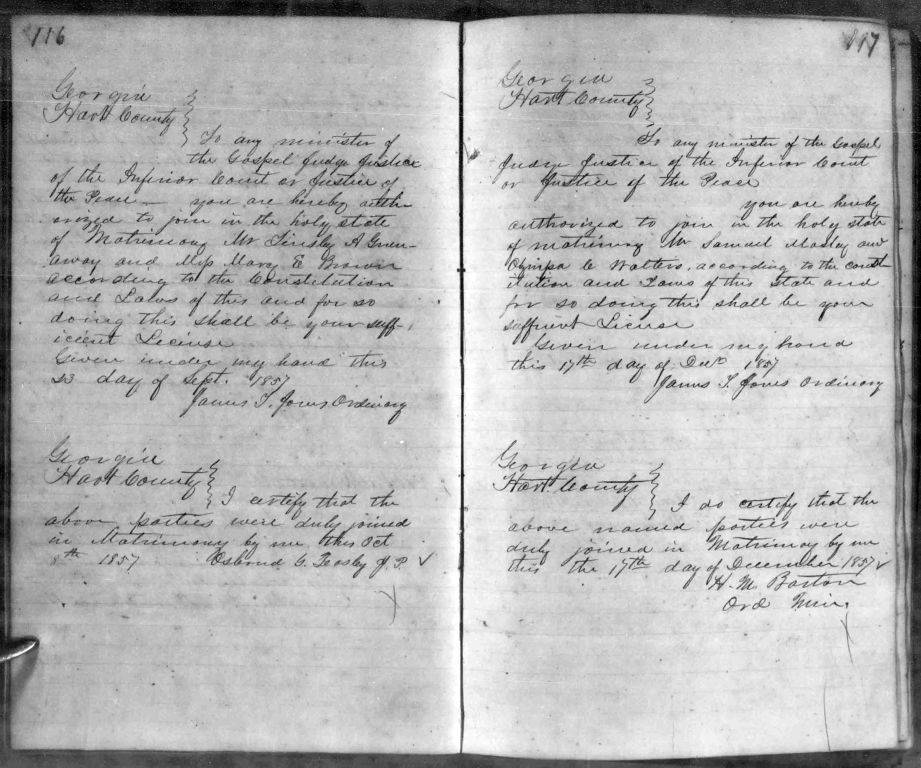 116
Georgia
Hart County
To any minister of
the Gospel Judge Justice
of the Inferior Court or Justice of
the Peace — you are hereby auth-
orized to join in the holy state
of Matrimony Mr Tinsley A Green-
away and Miss Mary E Brown
according to the Constitution
and Laws of this and for so
doing this shall be your suff-
icient License
Given under my hand this
23 day of Sept. 1857
James T. Jones Ordinary
Georgia
Hart County
I certify that the
above parties were duly joined
in Matrimony by me this Oct
8th 1857 Osbond C. J. P.
117
Georgia
Hart County
To any minister of the Gospel
Judge Justice of the Inferior Court
or Justice of the Peace
you are hereby
authorized to join in the holy state
of matrimony Mr Samuel Masley and
C Walters, according to the const-
itution and Laws of this State and
for so doing this shall be your
License
Given under my hand
this 17th day of Dec 1857
James T. Jones Ordinary
Georgia
Hart County
I do certify that the
above named parties were
duly joined in Matrimony by me
this the 17th day of December 1857
H. M. Barton
Ord Min.